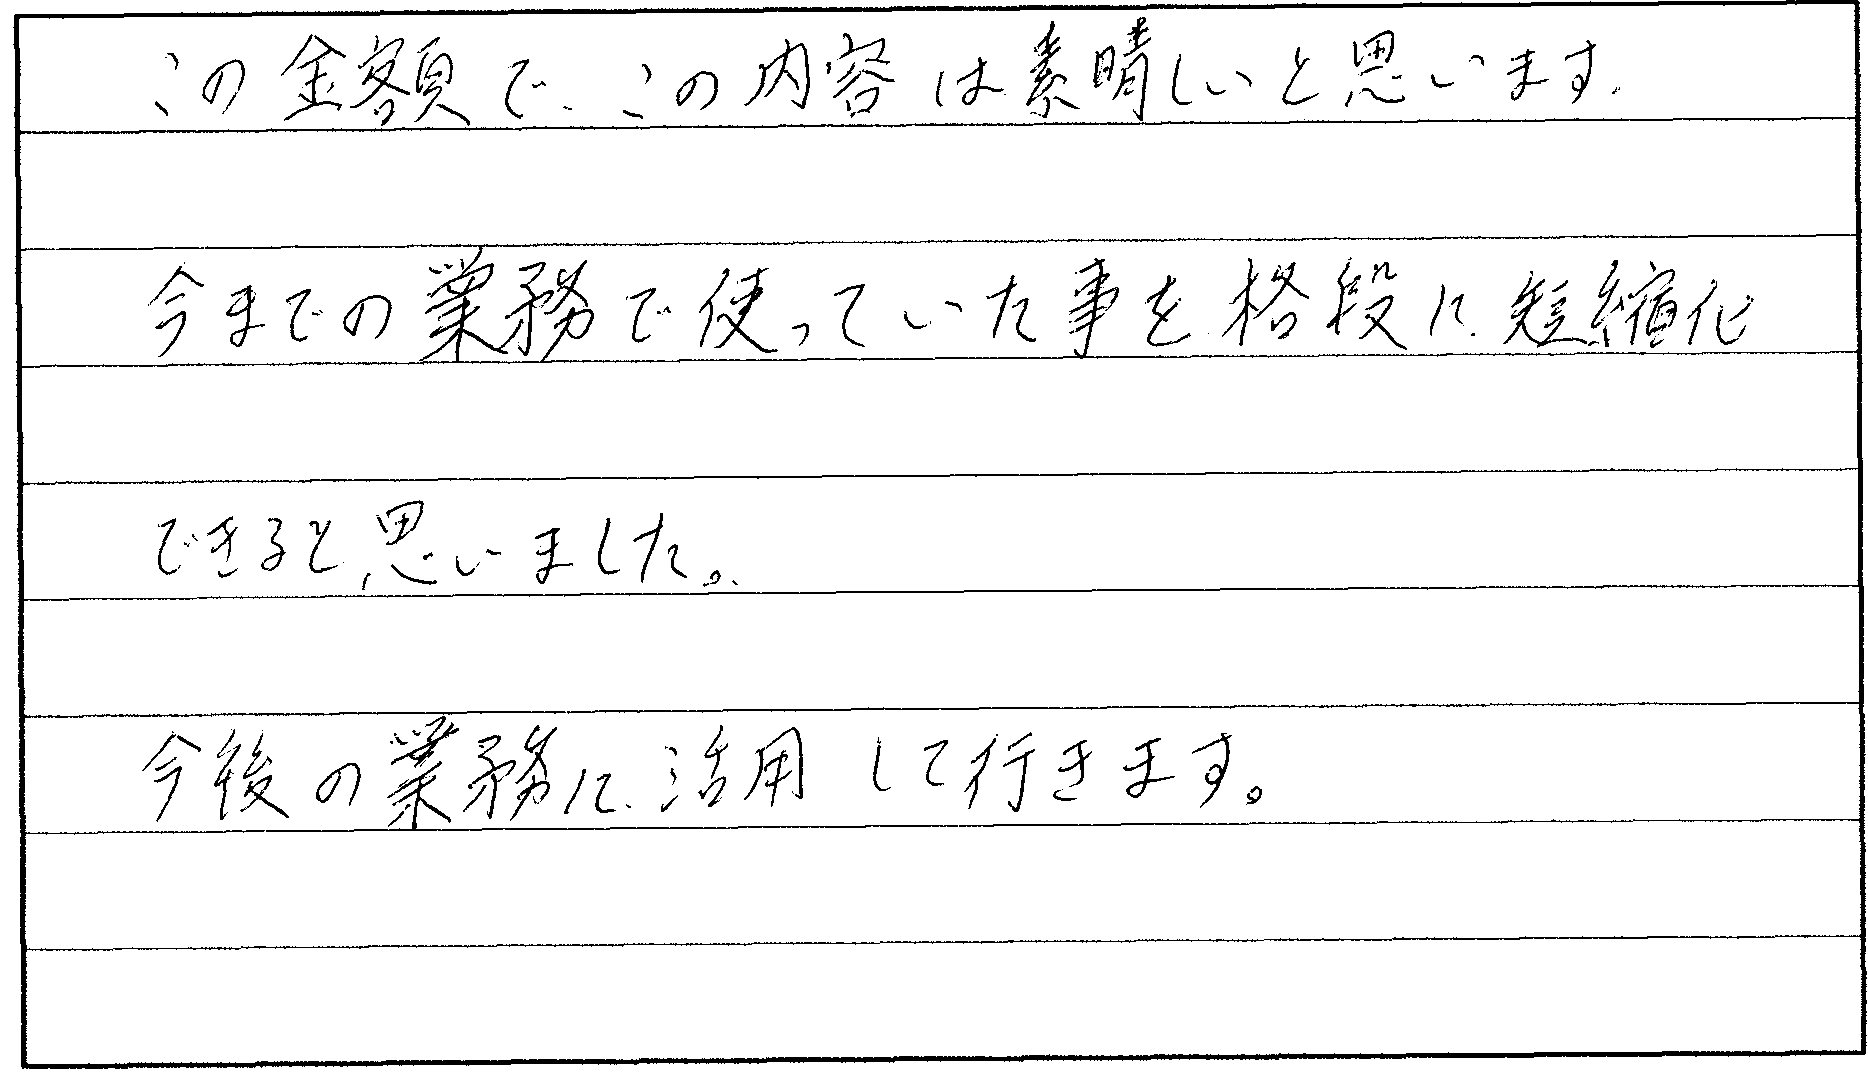 この金額で、この内容は素晴しいと思います.
今までの業務で使っていた事を格段に短縮化
できると思いました。
今後の業務に活用して行きます。